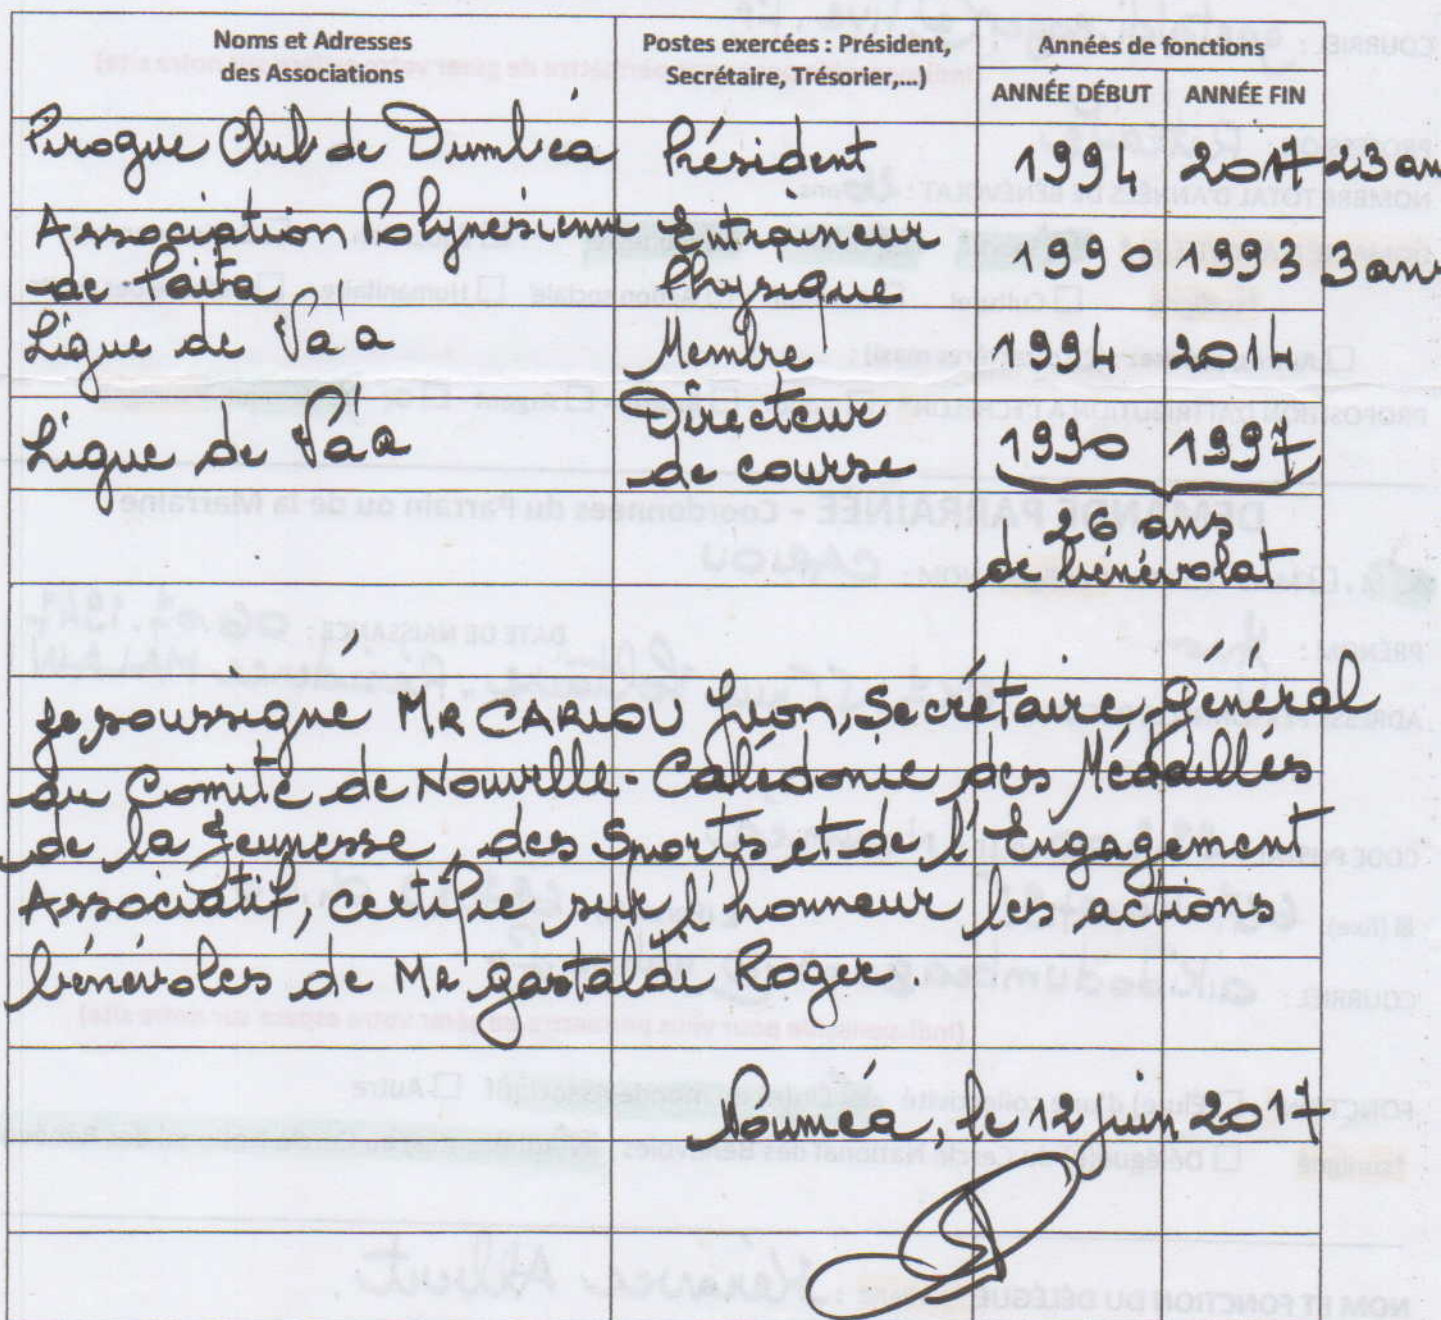 Noms et Adresses
des Associations
Postes exercées : Président,
Secrétaire, Trésorier,...)
Années de fonctions
ANNÉE DÉBUT ANNÉE FIN
Pirogue Club de Dumbéa Président 1994 2017 23 ans
Association Polynésienne Entraineur
de Païta Physique 1990 1993 3 ans
Ligue de Va'a Membre 1994 2014
Ligue de Va'a Directeur
de course 1990 1997
26 ans
de bénévolat
Je soussigné MR CARIOU Léon, Secrétaire Général
du Comité de Nouvelle-Calédonie des Médaillés
de la Jeunesse, des Sports et de l'Engagement
Associatif, certifie sur l'honneur les actions
bénévoles de MR Gastaldi Roger.
Nouméa, le 12 juin 2017